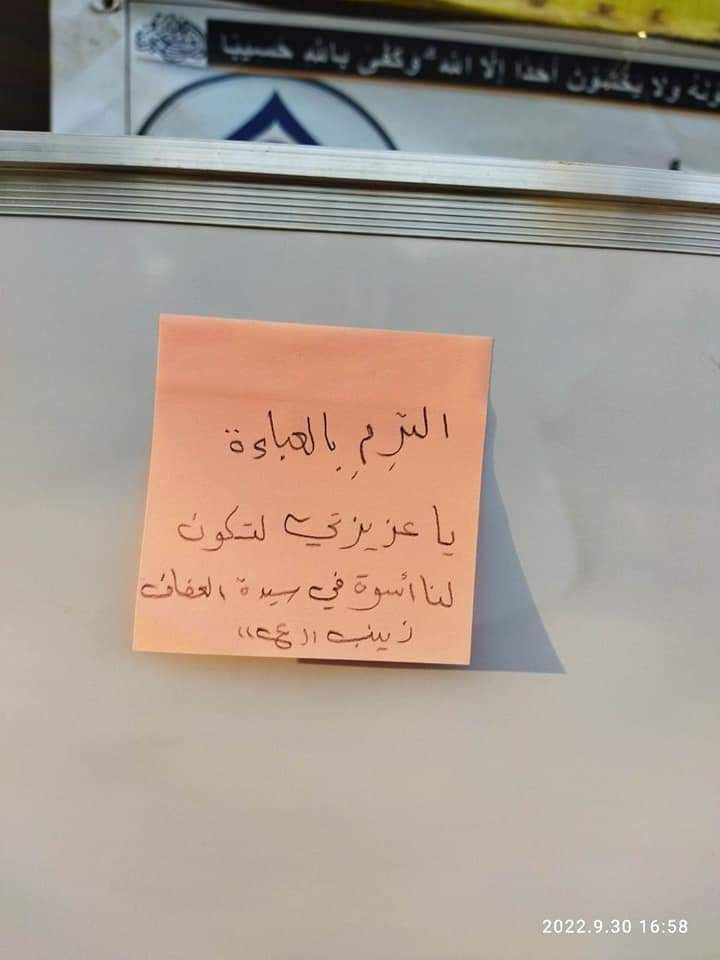 ونه ولا يخشون أحدا إلا الله وكفى بالله حسيبا
التزمِ بالعباءة
يا عزيزتي لتكون
لنا أسوة في سيدة العفاف
زينب "(ع)"
2022.9.30 16:58